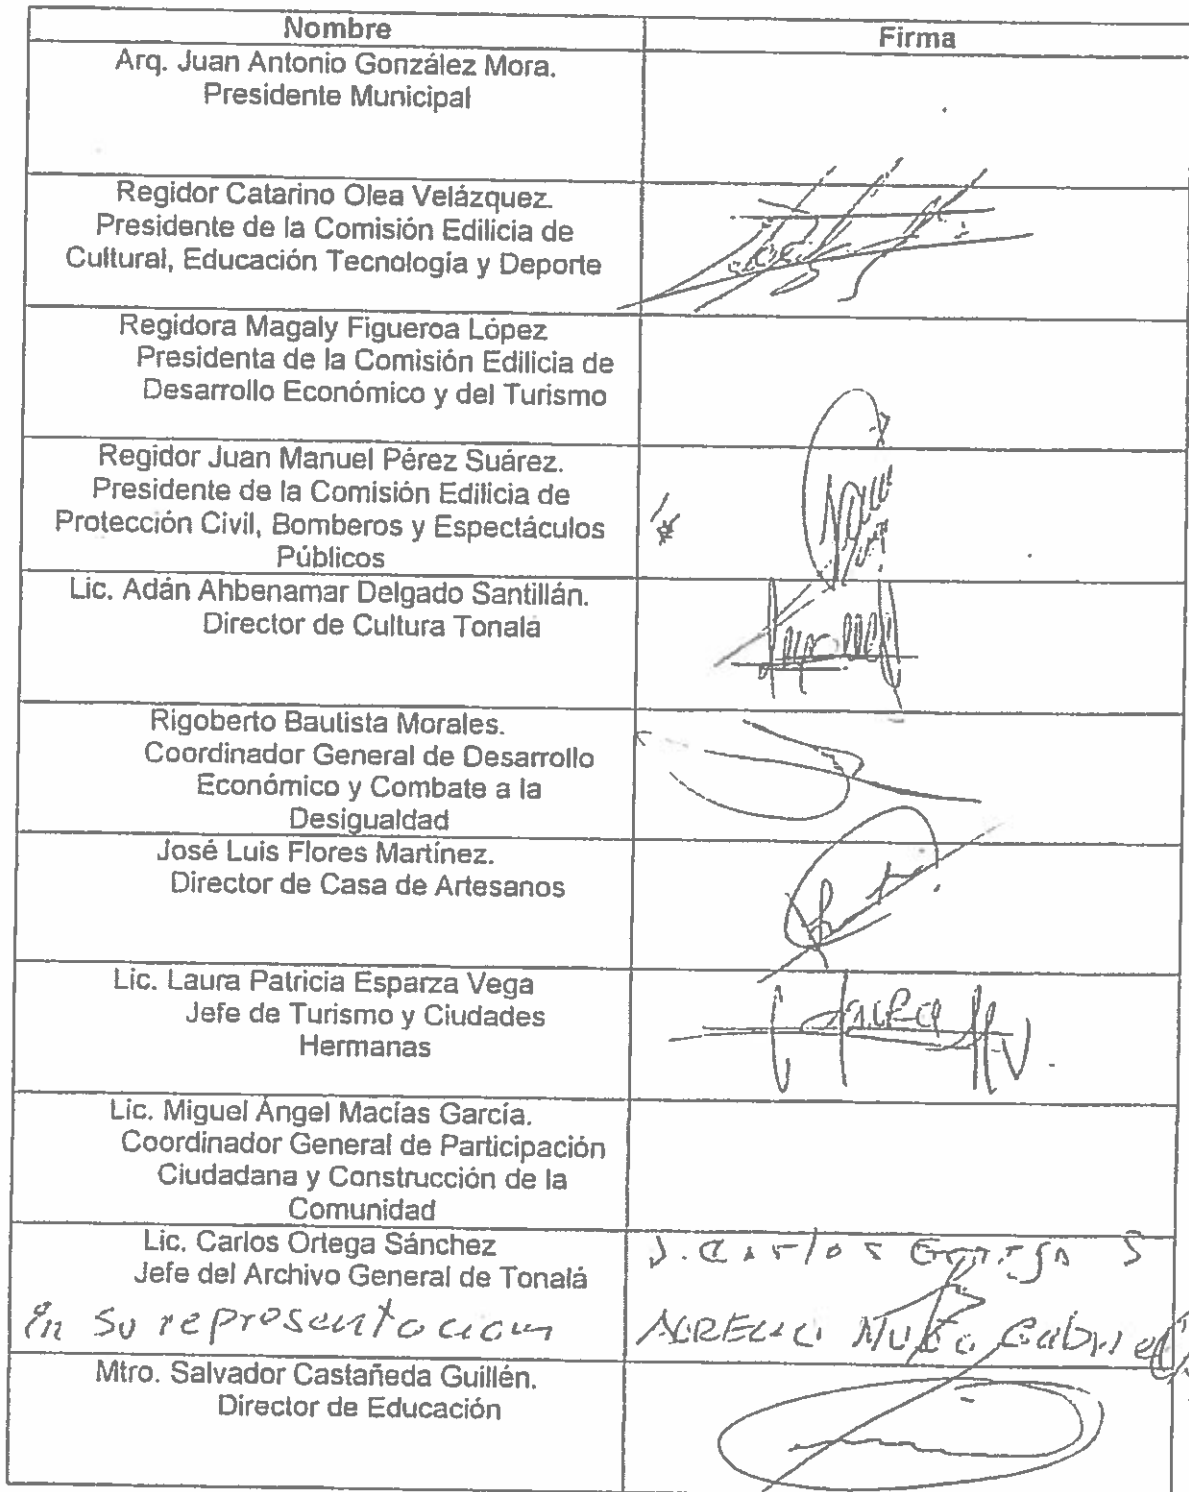 Nombre
Firma
Arq. Juan Antonio González Mora.
Presidente Municipal
Regidor Catarino Olea Velázquez.
Presidente de la Comisión Edilicia de
Cultural, Educación Tecnología y Deporte
Regidora Magaly Figueroa López
Presidenta de la Comisión Edilicia de
Desarrollo Económico y del Turismo
Regidor Juan Manuel Pérez Suárez.
Presidente de la Comisión Edilicia de
Protección Civil, Bomberos y Espectáculos
Públicos
Lic. Adán Ahbenamar Delgado Santillán.
Director de Cultura Tonalá
Rigoberto Bautista Morales.
Coordinador General de Desarrollo
Económico y Combate a la
Desigualdad
José Luis Flores Martínez.
Director de Casa de Artesanos
Lic. Laura Patricia Esparza Vega
Jefe de Turismo y Ciudades
Hermanas
Lic. Miguel Ángel Macías García.
Coordinador General de Participación
Ciudadana y Construcción de la
Comunidad
Lic. Carlos Ortega Sánchez
Jefe del Archivo General de Tonalá
En su representacion
J. Carlos S
Gabriel
Mtro. Salvador Castañeda Guillén.
Director de Educación